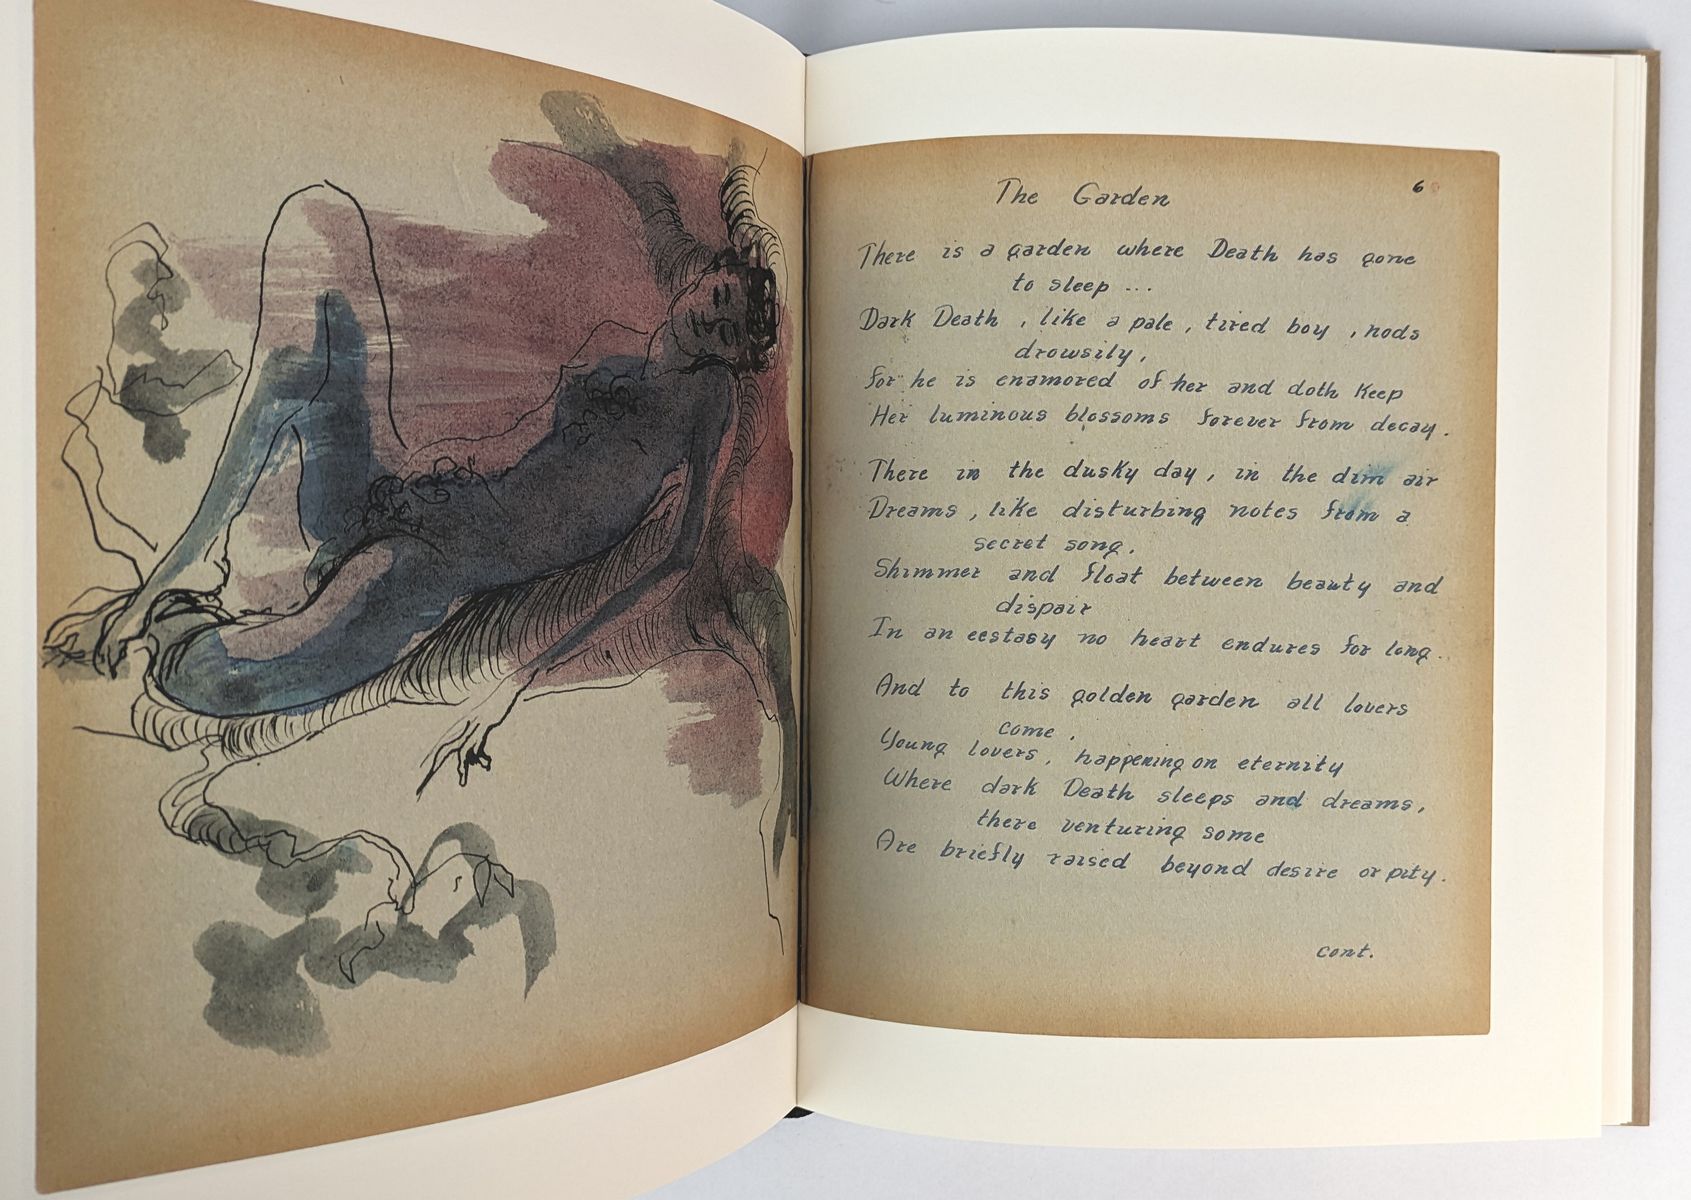 The Garden
6
There is a garden where Death has gone
to sleep ...
Dark Death, like a pale, tired boy, nods
drowsily,
for he is enamored of her and doth keep
Her luminous blossoms forever from decay.
There in the dusky day, in the dim air
Dreams, like disturbing notes from a
secret song,
Shimmer and float between beauty and
dispair
In an ecstasy no heart endures for long..
And to this golden garden all lovers
come,
Young lovers, happening on eternity
Where dark Death sleeps and dreams,
there venturing some
Are briefly raised beyond desire or pity.
cont.